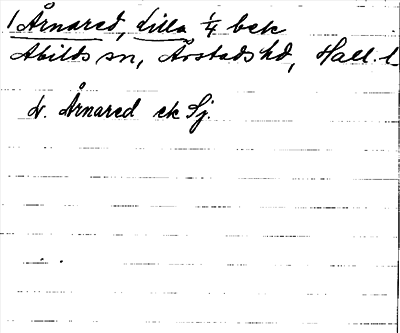 1 Årnared, Lilla 1/4 bek
Abilds sn, Årstads hd, Hall. l
L. Årnared ek Sj.